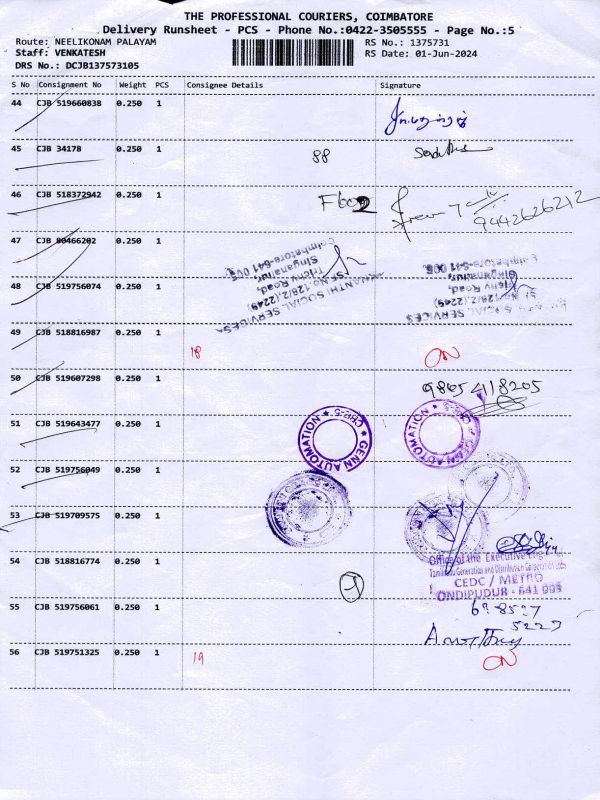 THE PROFESSIONAL COURIERS, COIMBATORE
Delivery Runsheet - PCS - Phone No.:0422-3505555 - Page No.:5
Route: NEELIKONAM PALAYAM
RS No.: 1375731
Staff: VENKATESH
RS Date: 01-Jun-2024
DRS No.: DCJB137573105
S No Consignment No Weight PCS Consignee Details Signature
44 CJB 519660838 0.250 1
45 CJB 34178 0.250 1 88
46 CJB 518372942 0.250 1 F602
9442626212
47 CJB 80466202 0.250 1
48 CJB 519756074 0.250 1
SOCIAL SERVICES
SF.No.128/2,(2249)
Trichy Road,
Singanallur,
Coimbatore-641 005.
SOCIAL SERVICES
(2249)
Trichy Road,
Singanallur,
Coimbatore-641 005.
49 CJB 518816987 0.250 1 18 ON
50 CJB 519607298 0.250 1 9865418205
51 CJB 519643477 0.250 1
GENN AUTOMATION * CBE-5 *
GENN AUTOMATION * CBE-5 *
52 CJB 519756049 0.250 1
53 CJB 519709575 0.250 1
54 CJB 518816774 0.250 1
Office of the Executive
Generation and Distribution Corporation
CEDC / METRO
ONDIPUDUR - 641 005
55 CJB 519756061 0.250 1
56 CJB 519751325 0.250 1 19 ON